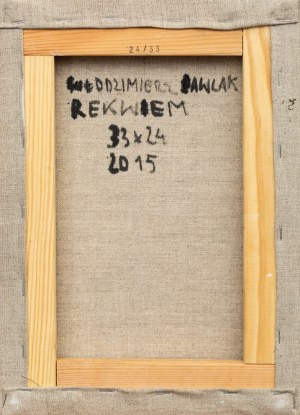 24/33
WŁODZIMIERZ PAWLAK
REKWIEM
33x24
2015